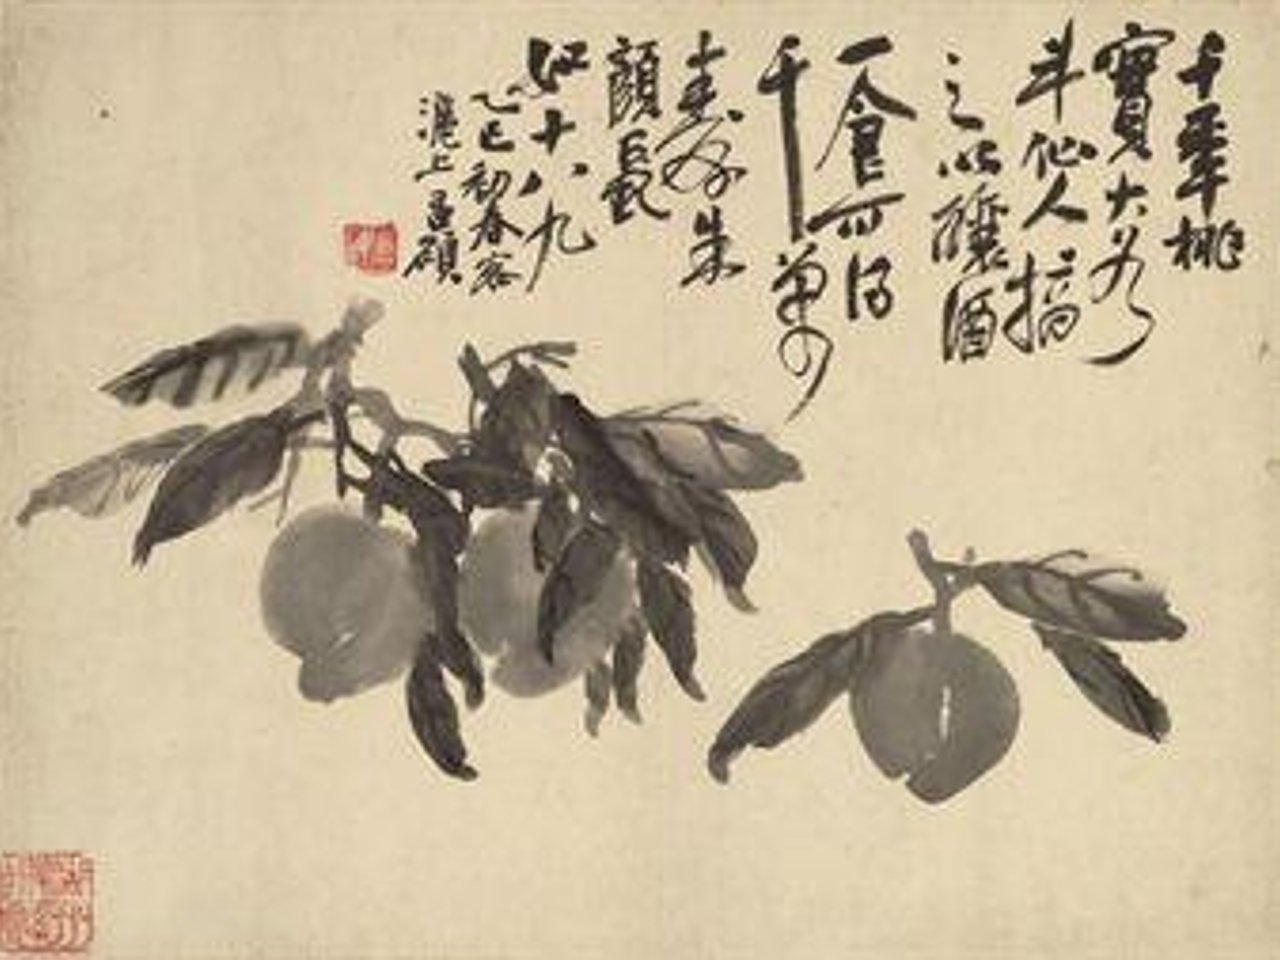 千年桃
實大於
斗仙人摘
之以釀酒
一食可得
千萬
壽朱
顏長
如十八九
乙巳初春客
滬上 昌碩